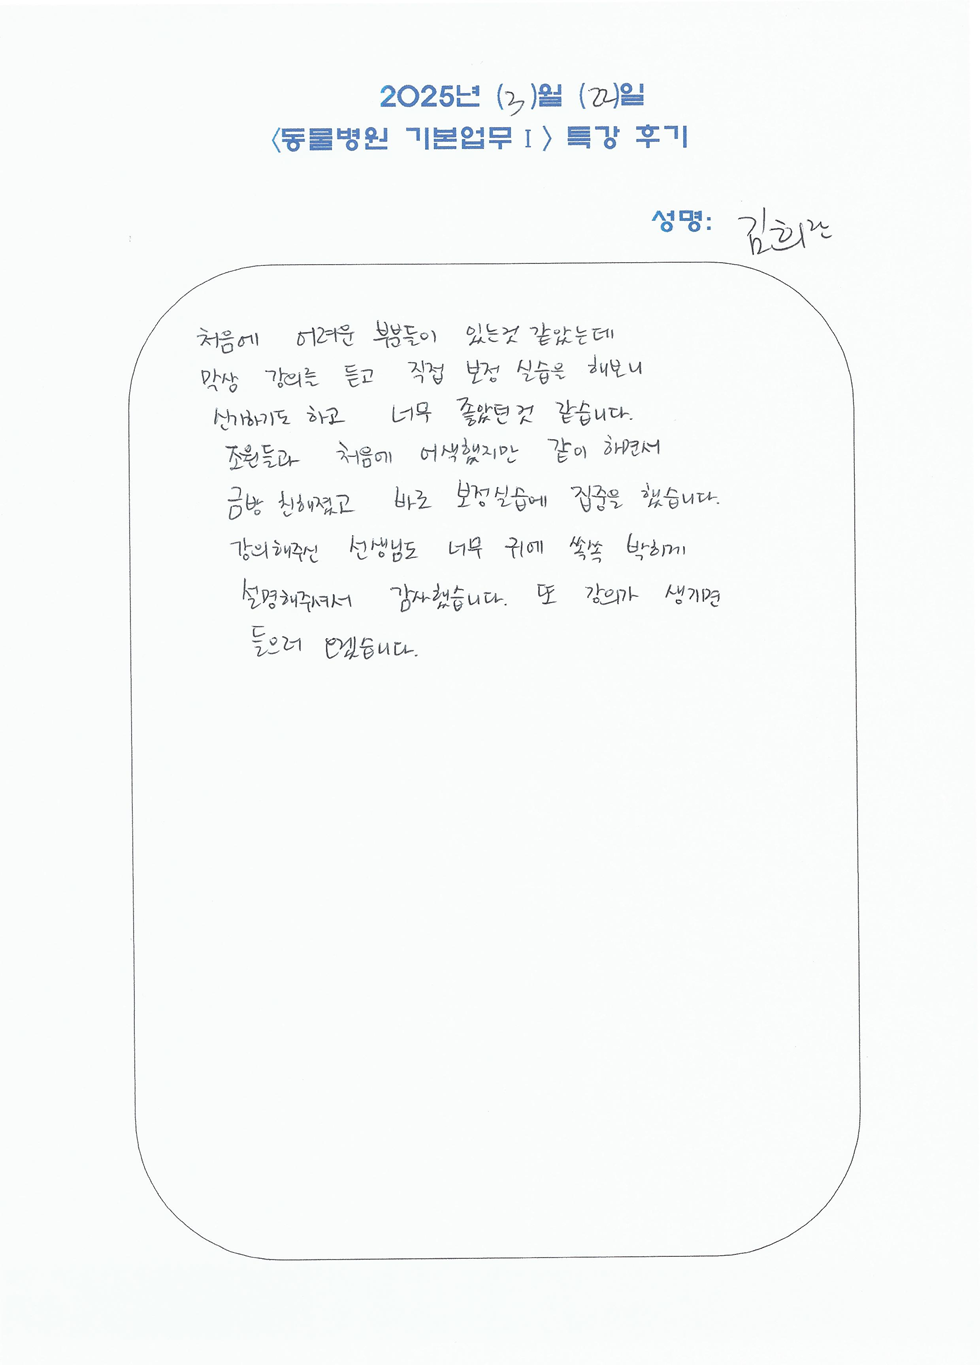 2025년 (3)월 (22)일
<동물병원 기본업무 I> 특강 후기
성명: 김희란
처음에 어려운 부분들이 있는것 같았는데
막상 강의를 듣고 직접 보정 실습을 해보니
신기하기도 하고 너무 좋았던것 같습니다.
조원들과 처음에 어색했지만 같이 하면서
금방 친해졌고 바로 보정실습에 집중을 했습니다.
강의해주신 선생님도 너무 귀에 쏙쏙 박히게
설명해주셔서 감사했습니다. 또 강의가 생기면
들으러 오겠습니다.